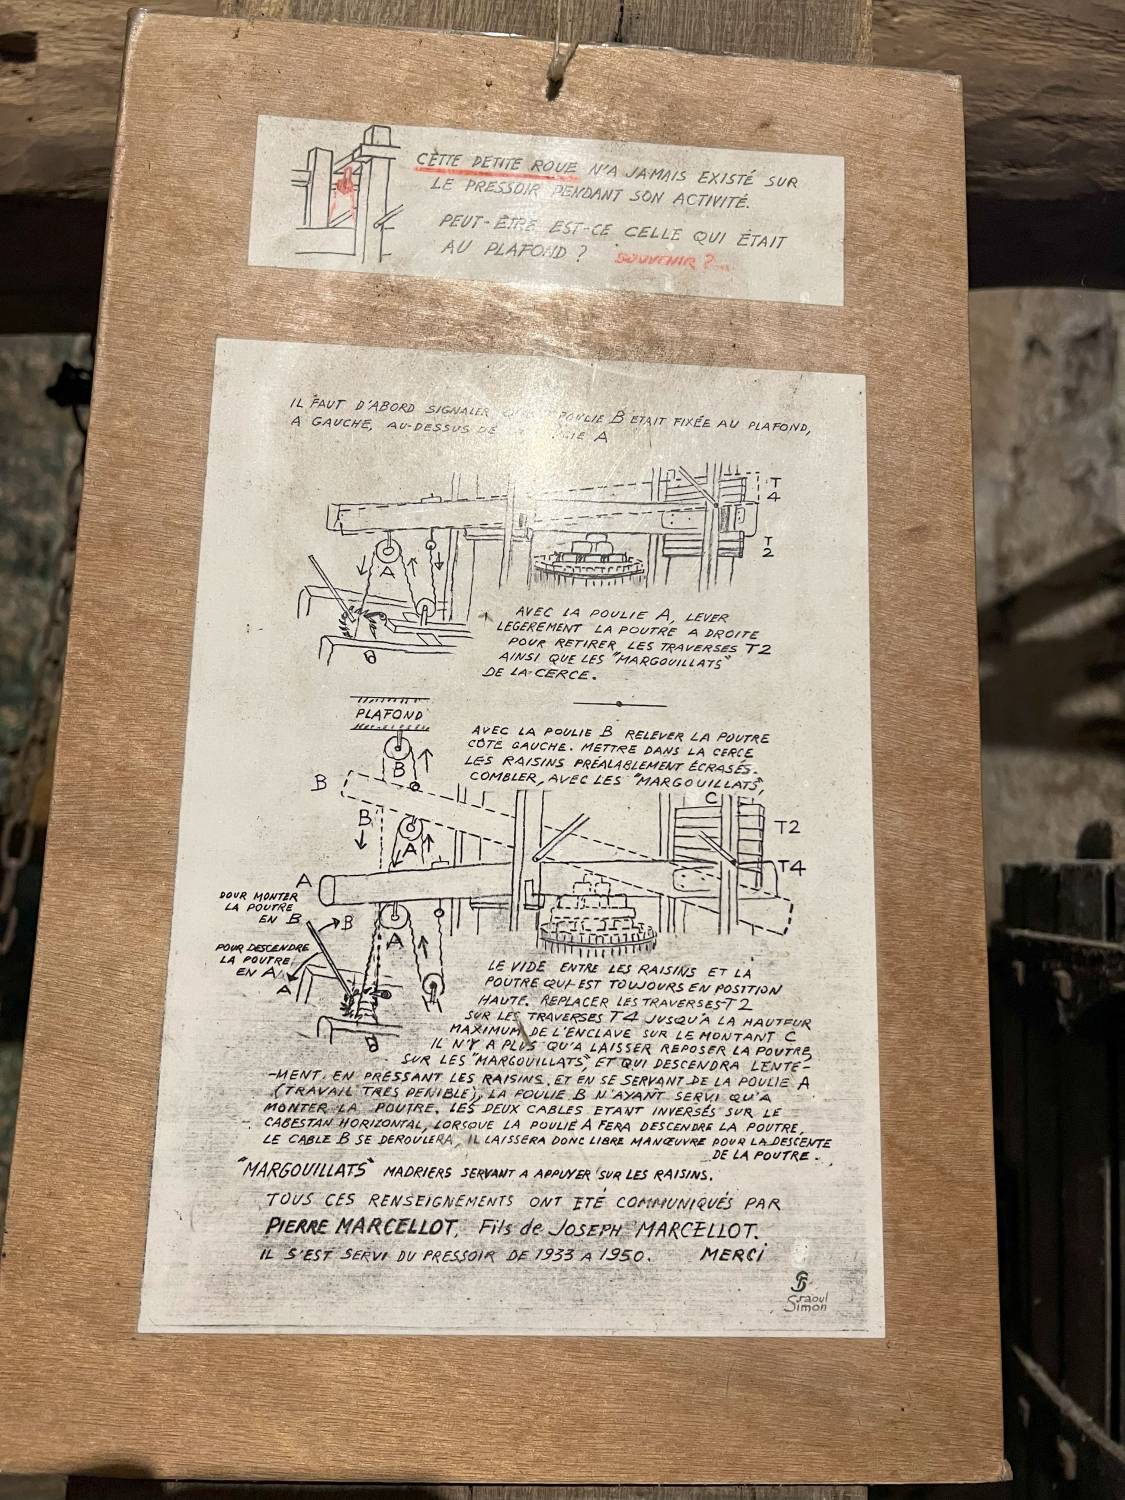 CETTE PETITE ROUE N'A JAMAIS EXISTÉ SUR
LE PRESSOIR PENDANT SON ACTIVITÉ.
PEUT-ÊTRE EST-CE CELLE QUI ÉTAIT
AU PLAFOND ? SOUVENIR ?...
IL FAUT D'ABORD SIGNALER POULIE B ETAIT FIXÉE AU PLAFOND,
A GAUCHE, AU-DESSUS DE A
T
4
T
2
A
B
AVEC LA POULIE A, LEVER
LEGEREMENT LA POUTRE A DROITE
POUR RETIRER LES TRAVERSES T2
AINSI QUE LES "MARGOUILLATS"
DE LA CERCE.
PLAFOND
B
AVEC LA POULIE B RELEVER LA POUTRE
CÔTÉ GAUCHE. METTRE DANS LA CERCE
LES RAISINS PRÉALABLEMENT ÉCRASÉS.
COMBLER, AVEC LES "MARGOUILLATS",
B
C
B
T2
A
T4
A
POUR MONTER
LA POUTRE
EN B
B
A
POUR DESCENDRE
LA POUTRE
EN A
A
B
LE VIDE ENTRE LES RAISINS ET LA
POUTRE QUI EST TOUJOURS EN POSITION
HAUTE. REPLACER LES TRAVERSES T2
SUR LES TRAVERSES T4 JUSQU'A LA HAUTEUR
MAXIMUM DE L'ENCLAVE SUR LE MONTANT C
IL N'Y A PLUS QU'A LAISSER REPOSER LA POUTRE,
SUR LES "MARGOUILLATS", ET QUI DESCENDRA LENTE-
-MENT, EN PRESSANT LES RAISINS, ET EN SE SERVANT DE LA POULIE A
(TRAVAIL TRES PENIBLE), LA POULIE B N'AYANT SERVI QU'A
MONTER LA POUTRE. LES DEUX CABLES ETANT INVERSÉS SUR LE
CABESTAN HORIZONTAL, LORSQUE LA POULIE A FERA DESCENDRE LA POUTRE,
LE CABLE B SE DEROULERA, IL LAISSERA DONC LIBRE MANŒUVRE POUR LA DESCENTE
DE LA POUTRE.
"MARGOUILLATS" MADRIERS SERVANT A APPUYER SUR LES RAISINS.
TOUS CES RENSEIGNEMENTS ONT ETÉ COMMUNIQUÉS PAR
PIERRE MARCELLOT, Fils de JOSEPH MARCELLOT.
IL S'EST SERVI DU PRESSOIR DE 1933 A 1950. MERCi
raoul
Simon